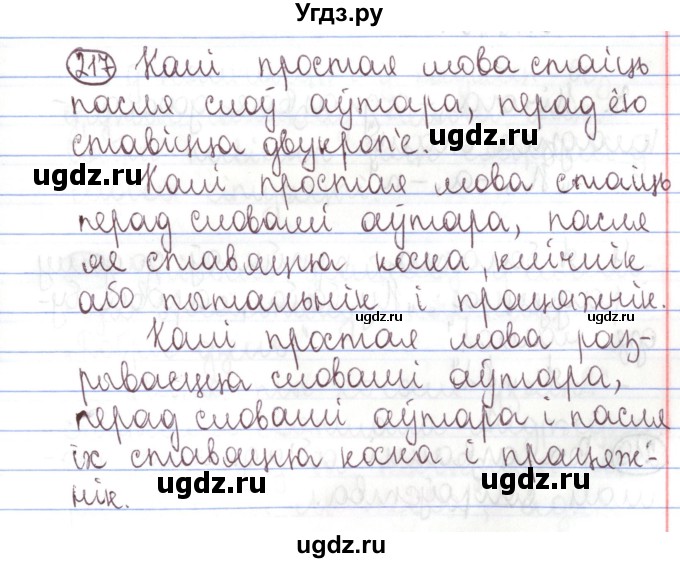 Угдз.ру
217 Калі простая мова стаіць
пасля слоў аўтара, перад ёю
ставіцца двукроп'е. ugdz.ru
ugdz.ru Калі простая мова стаіць
перад словамі аўтара, пасля
яе ставяцца коска, клічнік
або пытальнік і працяжнік.
ugdz.ru ugdz.ru
Калі простая мова раз-
рываецца словамі аўтара,
перад словамі аўтара і пасля
іх ставяцца коска і працяж-
нік. ugdz.ru ugdz.ru
ugdz.ru